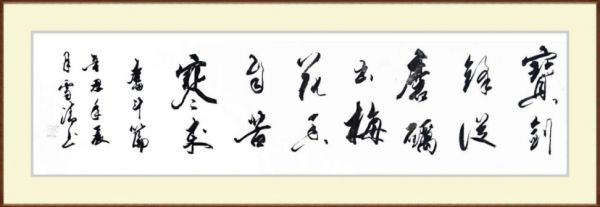 寶劍
鋒從
磨礪
出梅
花香
自苦
寒來
奮斗篇
辛丑年夏
月雪清書